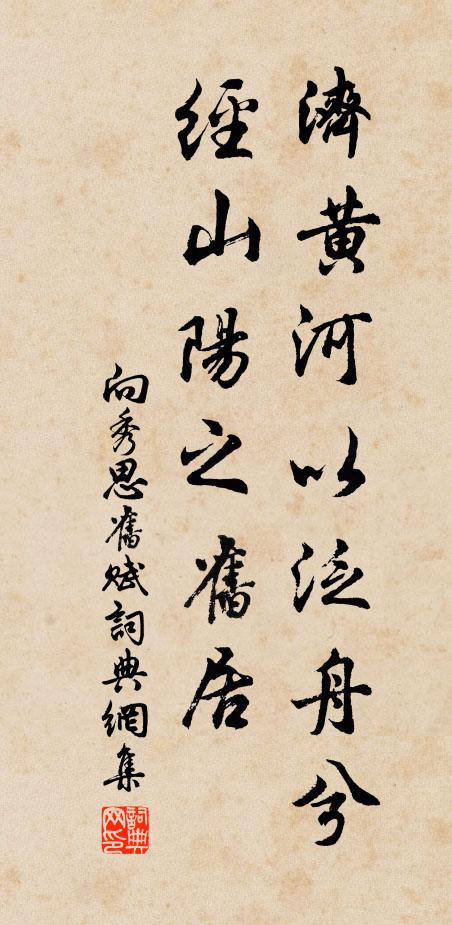 濟黃河以泛舟兮
經山陽之舊居
向秀思舊賦詞典網集
詞典網印